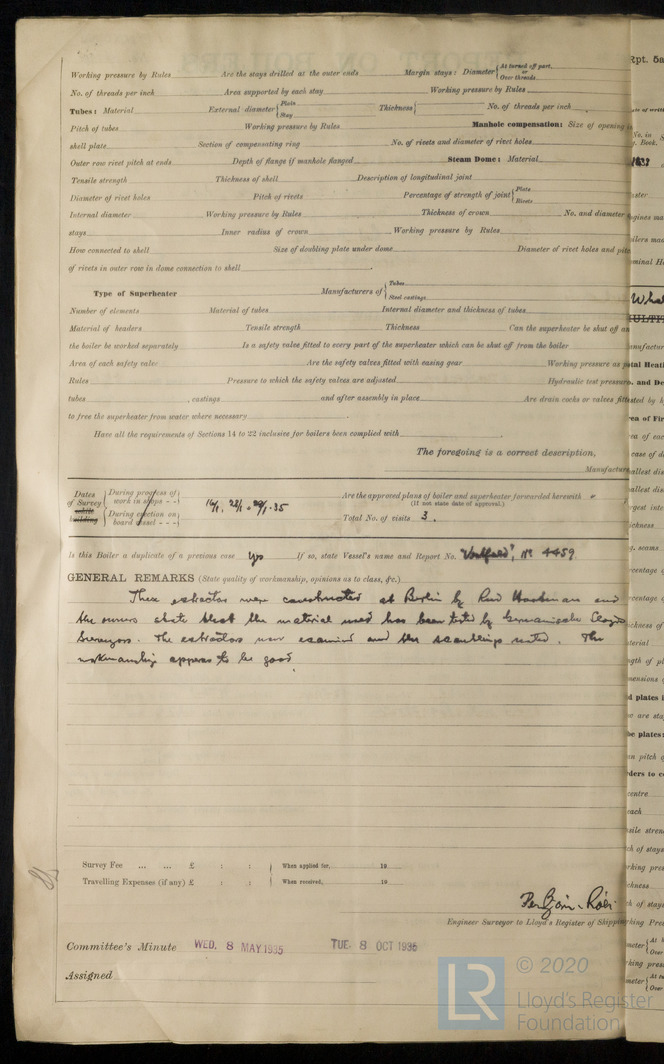 Working pressure by Rules Are the stays drilled at the outer ends Margin stays: Diameter { At turned off part, or Over threads
No. of threads per inch Area supported by each stay Working pressure by Rules
Tubes: Material External diameter { Plain Stay Thickness { No. of threads per inch
Pitch of tubes Working pressure by Rules Manhole compensation: Size of opening
shell plate Section of compensating ring No. of rivets and diameter of rivet holes
Outer row rivet pitch at ends Depth of flange if manhole flanged Steam Dome: Material
Tensile strength Thickness of shell Description of longitudinal joint
Diameter of rivet holes Pitch of rivets Percentage of strength of joint { Plate Rivets
Internal diameter Working pressure by Rules Thickness of crown No. and diameter
stays Inner radius of crown Working pressure by Rules
How connected to shell Size of doubling plate under dome Diameter of rivet holes and
of rivets in outer row in dome connection to shell
Type of Superheater Manufacturers of { Tubes Steel castings
Number of elements Material of tubes Internal diameter and thickness of tubes
Material of headers Tensile strength Thickness Can the superheater be shut off
the boiler be worked separately Is a safety valve fitted to every part of the superheater which can be shut off from the boiler
Area of each safety valve Are the safety valves fitted with easing gear Working pressure as
Rules Pressure to which the safety valves are adjusted Hydraulic test pressure
tubes , castings and after assembly in place Are drain cocks or valves
to free the superheater from water where necessary
Have all the requirements of Sections 14 to 22 inclusive for boilers been complied with
The foregoing is a correct description,
Manufacture
Dates of Survey while building { During progress of work in shops - - During erection on board vessel - - - }
Are the approved plans of boiler and superheater forwarded herewith
(If not state date of approval.)
Total No. of visits 3.
Is this Boiler a duplicate of a previous case Yes If so, state Vessel's name and Report No. No 4459
GENERAL REMARKS (State quality of workmanship, opinions as to class, &c.)
These extractors were constructed at Berlin by and
the owners state that the material used has been tested by Germanischer Lloyds
Surveyors. The extractors were examined and the scantlings noted. The
workmanship appears to be good.
Survey Fee ... ... £ : : } When applied for, 19
Travelling Expenses (if any) £ : : } When received, 19
Engineer Surveyor to Lloyd's Register of Shipping
Committee's Minute WED. 8 MAY 1935 TUE. 8 OCT 1935
Assigned
Rpt. 5a
LR © 2020
Lloyd's Register
Foundation